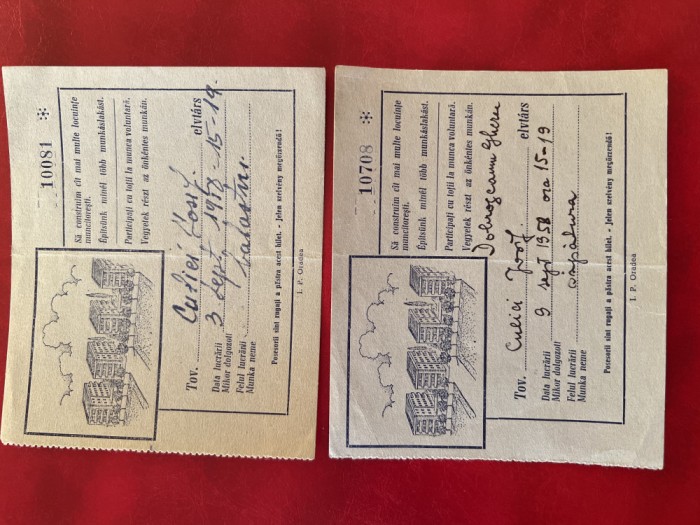 10081
Să construim cît mai multe locuințe
muncitorești.
Építsünk minél több munkáslakást.
Participați cu toții la munca voluntară.
Vegyetek részt az önkéntes munkán.
Tov. Culici Iosif elvtárs
Data lucrării 3 sept. 1958 - 15-19.
Mikor dolgozott
Felul lucrării
Munka neme
Posesorii sînt rugați a păstra acest bilet. - Jelen szelvény megőrzendő!
I. P. Oradea
10708
Să construim cît mai multe locuințe
muncitorești.
Építsünk minél több munkáslakást.
Participați cu toții la munca voluntară.
Vegyetek részt az önkéntes munkán.
Dobrogeanu Gherea
Tov. Culici Iosif elvtárs
Data lucrării 9 sept 1958 ora 15-19
Mikor dolgozott
Felul lucrării săpătura
Munka neme
Posesorii sînt rugați a păstra acest bilet. - Jelen szelvény megőrzendő!
I. P. Oradea